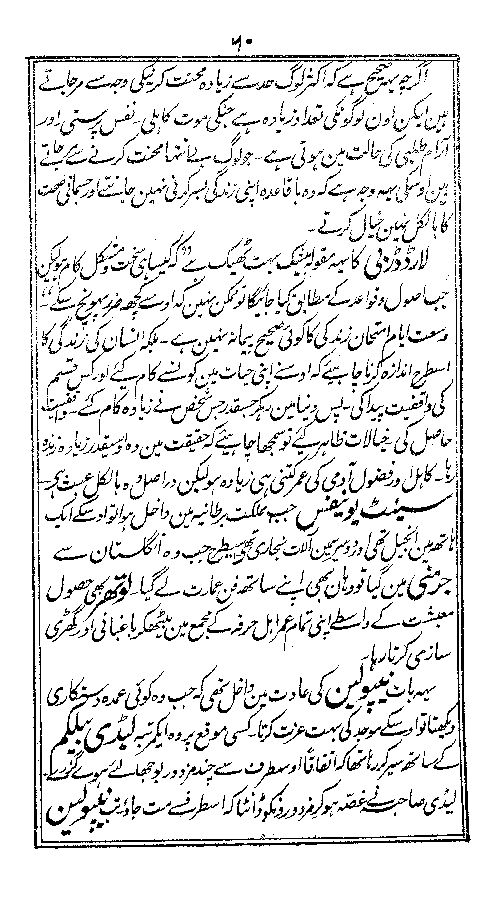 ۶۰
اگرچہ یہہ صحیح ہے کہ اکثر لوگ حد سے زیادہ محنت کرنیکی وجہ سے مرجاتے
ہین لیکن اون لوگونکی تعداد زیادہ ہے جنکی موت کاہلی۔ نفس پرستی اور
آرام طلبی کی حالت مین ہوتی ہے۔ جو لوگ بے انتہا محنت کرنے سے مرجاتے
ہین اوسکی یہہ وجہ ہے کہ وہ باقاعدہ اپنی زندگی بسر کرنی نہین جانتے اور جسمانی صحت
کا بالکل نہین خیال کرتے۔
لارڈ ڈربی کا یہہ مقولہ بیشک بہت ٹھیک ہے "کہ کیسا ہی سخت و مشکل کام ہو لیکن
جب اصول و قواعد کے مطابق کیا جائیگا تو ممکن نہین کہ اوس سے کچھہ ضرر پہونچ سکے"
وسعت ایام امتحان زندگی کا کوئی صحیح پیمانہ نہین ہے۔ بلکہ انسان کی زندگی کا
اسطرح اندازہ کرنا چاہئے کہ اوسنے اپنی حیات مین کونسے کام کئے اور کس قسم
کی واقفیت پیدا کی۔ پس دنیا مین جسقدر جس شخص نے زیادہ کام کئے۔ واقفیت
حاصل کی۔ خیالات ظاہر کئے تو سمجھنا چاہئیے کہ حقیقت مین وہ اوسیقدر زیادہ زندہ
رہا۔ کاہل اور فضول آدمی کی عمر کتنی ہی زیادہ ہو لیکن دراصل وہ بالکل عبث ہے
سینٹ بونیفس جب مملکت برطانیہ مین داخل ہوا تو اوسکے ایک
ہاتھہ مین انجیل تھی اور دوسرے مین آلات نجاری تھے اسیطرح جب وہ انگلستان سے
جرمنی مین گیا تو وہان بھی اپنے ساتھہ فن عمارت لے گیا۔ لوتھر بھی حصول
معیشت کے واسطے اپنی تمام عمر اہل حرفہ کے مجمع مین بیٹھکر باغبانی اور گھڑی
سازی کرتا رہا۔
یہہ بات نیپولین کی عادت مین داخل تھی کہ جب وہ کوئی عمدہ دستکاری
دیکھتا تو اوسکے موجد کی بہت عزت کرتا۔ کسی موقع پر وہ ایکمرتبہ لیڈی بیلکم
کے ساتھہ سیر کررہا تھا کہ اتفاقاً اوسطرف سے چند مزدور بوجھا لئے ہوئے گزرے۔
لیڈی صاحبہ نے غصہ ہوکر مزدورونکو ڈانٹا کہ اسطرف سے مت جاؤ۔ تب نیپولین